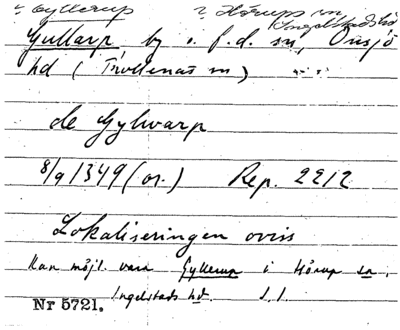 ? Gyllerup ? Hörup sn, Ingelstads hd
Gullarp, by i f.d. sn, Onsjö
hd (Trollenäs sn)
de Gylwarp
8/9 1349 (or.) Rep. 2212
Lokaliseringen oviss
Kan möjl. vara Gyllerup i Hörup sn,
Ingelstads hd. L. I.
Nr 5721.